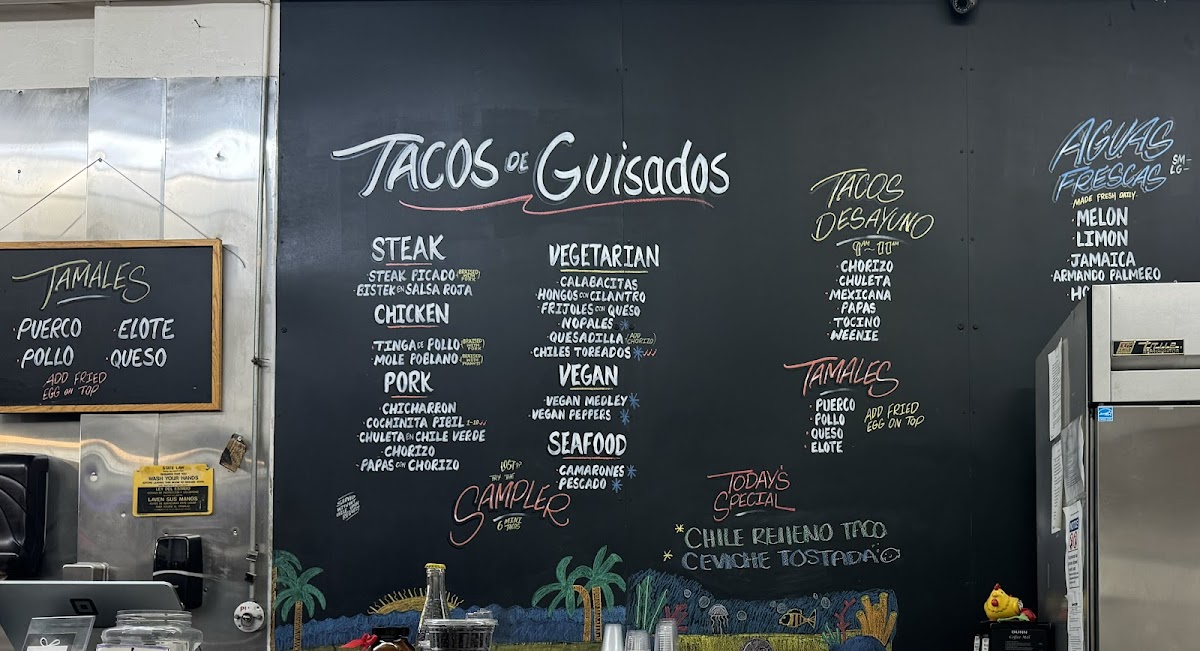 TACOS DE GUISADOS
STEAK
· STEAK PICADO (BRAISED WITH PORK)
· BISTEK EN SALSA ROJA
CHICKEN
· TINGA DE POLLO (BRAISED WITH PORK)
· MOLE POBLANO (BRAISED WITH PEANUTS)
PORK
· CHICHARRON
· COCHINITA PIBIL 1-10
· CHULETA EN CHILE VERDE
· CHORIZO
· PAPAS CON CHORIZO
VEGETARIAN
· CALABACITAS
· HONGOS CON CILANTRO
· FRIJOLES CON QUESO
· NOPALES *
· QUESADILLA (ADD CHORIZO)
· CHILES TOREADOS *
VEGAN
· VEGAN MEDLEY *
· VEGAN PEPPERS *
SEAFOOD
· CAMARONES *
· PESCADO *
LOST?
TRY THE
SAMPLER
6 MINI
TACOS
TACOS
DESAYUNO
9AM - 11AM
· CHORIZO
· CHULETA
· MEXICANA
· PAPAS
· TOCINO
· WEENIE
TAMALES
· PUERCO
· POLLO
· QUESO
· ELOTE
ADD FRIED
EGG ON TOP
TODAY'S
SPECIAL
* CHILE RELLENO TACO
* CEVICHE TOSTADA
AGUAS
FRESCAS
SM-
LG-
MADE FRESH DAILY
· MELON
· LIMON
· JAMAICA
· ARMANDO PALMERO
TAMALES
· PUERCO
· POLLO
· ELOTE
· QUESO
ADD FRIED
EGG ON TOP
STATE LAW
WASH YOUR HANDS
LEY DEL ESTADO
LAVEN SUS MANOS